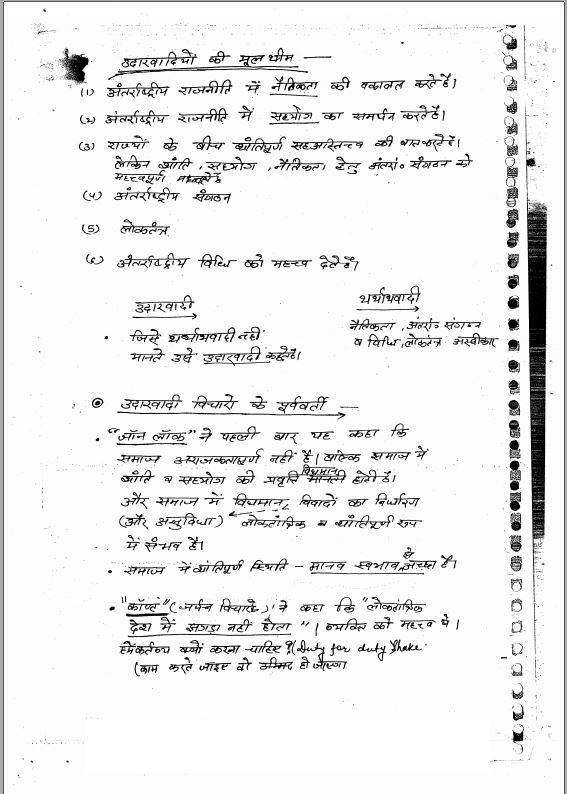 उदारवादियों की मूल थीम —
(1) अंतर्राष्ट्रीय राजनीति में नैतिकता की वकालत करते हैं।
(2) अंतर्राष्ट्रीय राजनीति में सहयोग का समर्थन करते हैं।
(3) राज्यों के बीच शांतिपूर्ण सहअस्तित्व की बात करते हैं।
लेकिन शांति, सहयोग, नैतिकता हेतु अंतर्रा० संगठन को
महत्त्वपूर्ण मानते हैं
(4) अंतर्राष्ट्रीय संगठन
(5) लोकतंत्र
(6) अंतर्राष्ट्रीय विधि को महत्त्व देते हैं।
उदारवादी
• जिसे यर्थाथवादी नहीं
मानते उसे उदारवादी कहते हैं।
यर्थाथवादी
नैतिकता, अंतर्रा० संगठन
व विधि, लोकतंत्र अस्वीकार
उदारवादी विचारों के पूर्ववर्ती —
• "जॉन लॉक" ने पहली बार यह कहा कि
समाज अराजकतापूर्ण नहीं है। बल्कि समाज में
शांति व सहयोग की प्रवृति विद्यमान होती है।
और समाज में विद्यमान विवादों का निर्धारण
(और असुविधा) लोकतांत्रिक व शांतिपूर्ण रूप
में संभव है।
• समाज में शांतिपूर्ण स्थिति – मानव स्वभाव से अच्छा है।
• "कॉण्ट" (जर्मन विचारक) ने कहा कि "लोकतांत्रिक
देश में झगड़ा नहीं होता"। व्यक्ति को महत्त्व दे।
हमें कर्तव्य क्यों करना चाहिए? (Duty for duty Shake
(काम करते जाइए वो